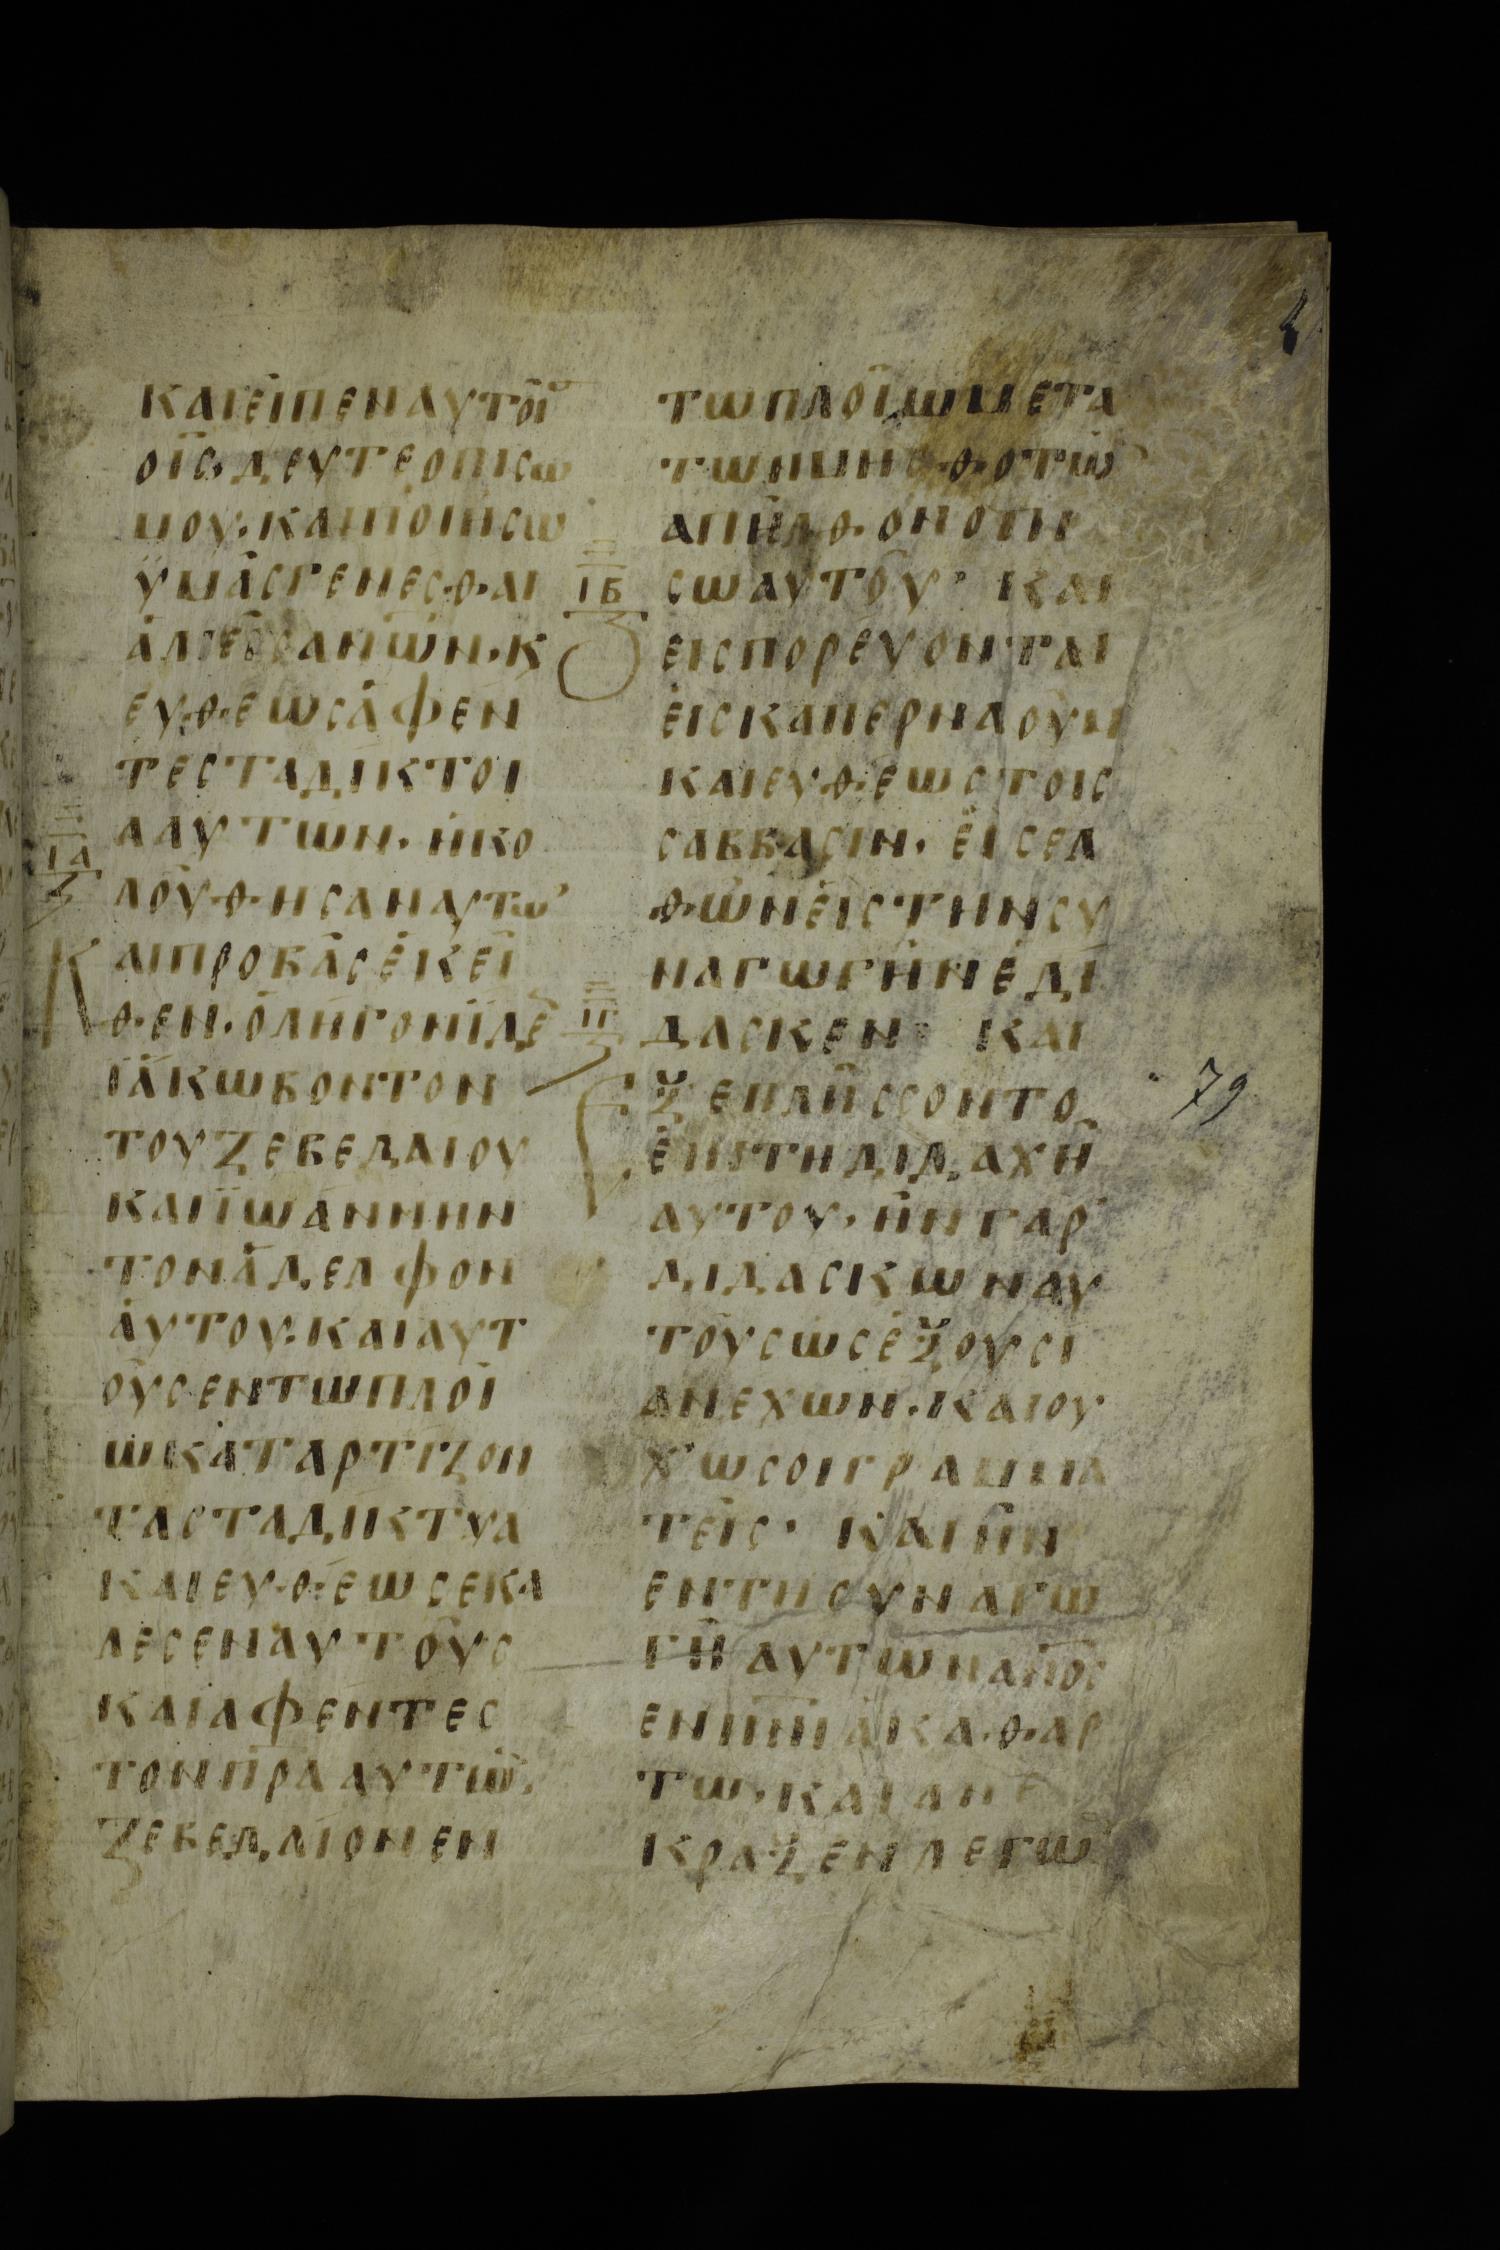 ΚΑΙΕΙΠΕΝΑΥΤΟΙ
ΟΙΣ·ΔΕΥΤΕΟΠΙCΩ
ΜΟΥ·ΚΑΙΠΟΙΗCΩ
ΥΜΑCΓΕΝΕCΘΑΙ
ΑΛΕΕΙCΑΝΩΝ·Κ
ΕΥΘΕΩCΑΦΕΝ
ΤΕCΤΑΔΙΚΤΟΙ
ΑΑΥΤΩΝ·ΗΚΟ
ΛΟΥΘΗCΑΝΑΥΤΩ
ΚΑΙΠΡΟΒΑCΕΚΕΙ
ΘΕΝ·ΟΛΗΓΟΝΙΔΕ
ΙΑΚΩΒΟΝΤΟΝ
ΤΟΥΖΕΒΕΔΑΙΟΥ
ΚΑΙΙΩΑΝΝΗΝ
ΤΟΝΑΔΕΛΦΟΝ
ΑΥΤΟΥ·ΚΑΙΑΥΤ
ΟΥCΕΝΤΩΠΛΟΙ
ΩΚΑΤΑΡΤΙΖΟΝ
ΤΑCΤΑΔΙΚΤΥΑ
ΚΑΙΕΥΘΕΩCΕΚΑ
ΛΕCΕΝΑΥΤΟΥC
ΚΑΙΑΦΕΝΤΕC
ΤΟΝΠΡΑΑΥΤΩ·
ΖΕΒΕΔΑΙΟΝΕΝ
ΙΑ
ΙΒ
ΙΓ
ΤΩΠΛΟΙΩΜΕΤΑ
ΤΩΝΜΗCΘΟΤΩ
ΑΠΗΛΘΟΝΟΠΗ
CΩΑΥΤΟΥ· ΚΑΙ
ΕΙCΠΟΡΕΥΟΝΤΑΙ
ΕΙCΚΑΠΕΡΝΑΟΥΜ
ΚΑΙΕΥΘΕΩCΤΟΙC
CΑΒΒΑCΙΝ·ΕΙCΕΛ
ΘΩΝΕΙCΤΗΝCΥ
ΝΑΓΩΓΗΝΕΔΙ
ΔΑCΚΕΝ· ΚΑΙ
ΕΞΕΠΛΗCCΟΝΤΟ
ΕΠΙΤΗΔΙΔΑΧΗ
ΑΥΤΟΥ·ΗΝΓΑΡ
ΔΙΔΑCΚΩΝΑΥ
ΤΟΥCΩCΕΞΟΥCΙ
ΑΝΕΧΩΝ·ΚΑΙΟΥ
ΧΩCΟΙΓΡΑΜΜΑ
ΤΕΙC· ΚΑΙΗΝ
ΕΝΤΗCΥΝΑΓΩ
ΓΗΑΥΤΩΝΑΠΟC
ΕΝΠΝΙΑΚΑΘΑΡ
ΤΩ·ΚΑΙΑΝΕ
ΚΡΑΞΕΝΛΕΓΩ
79